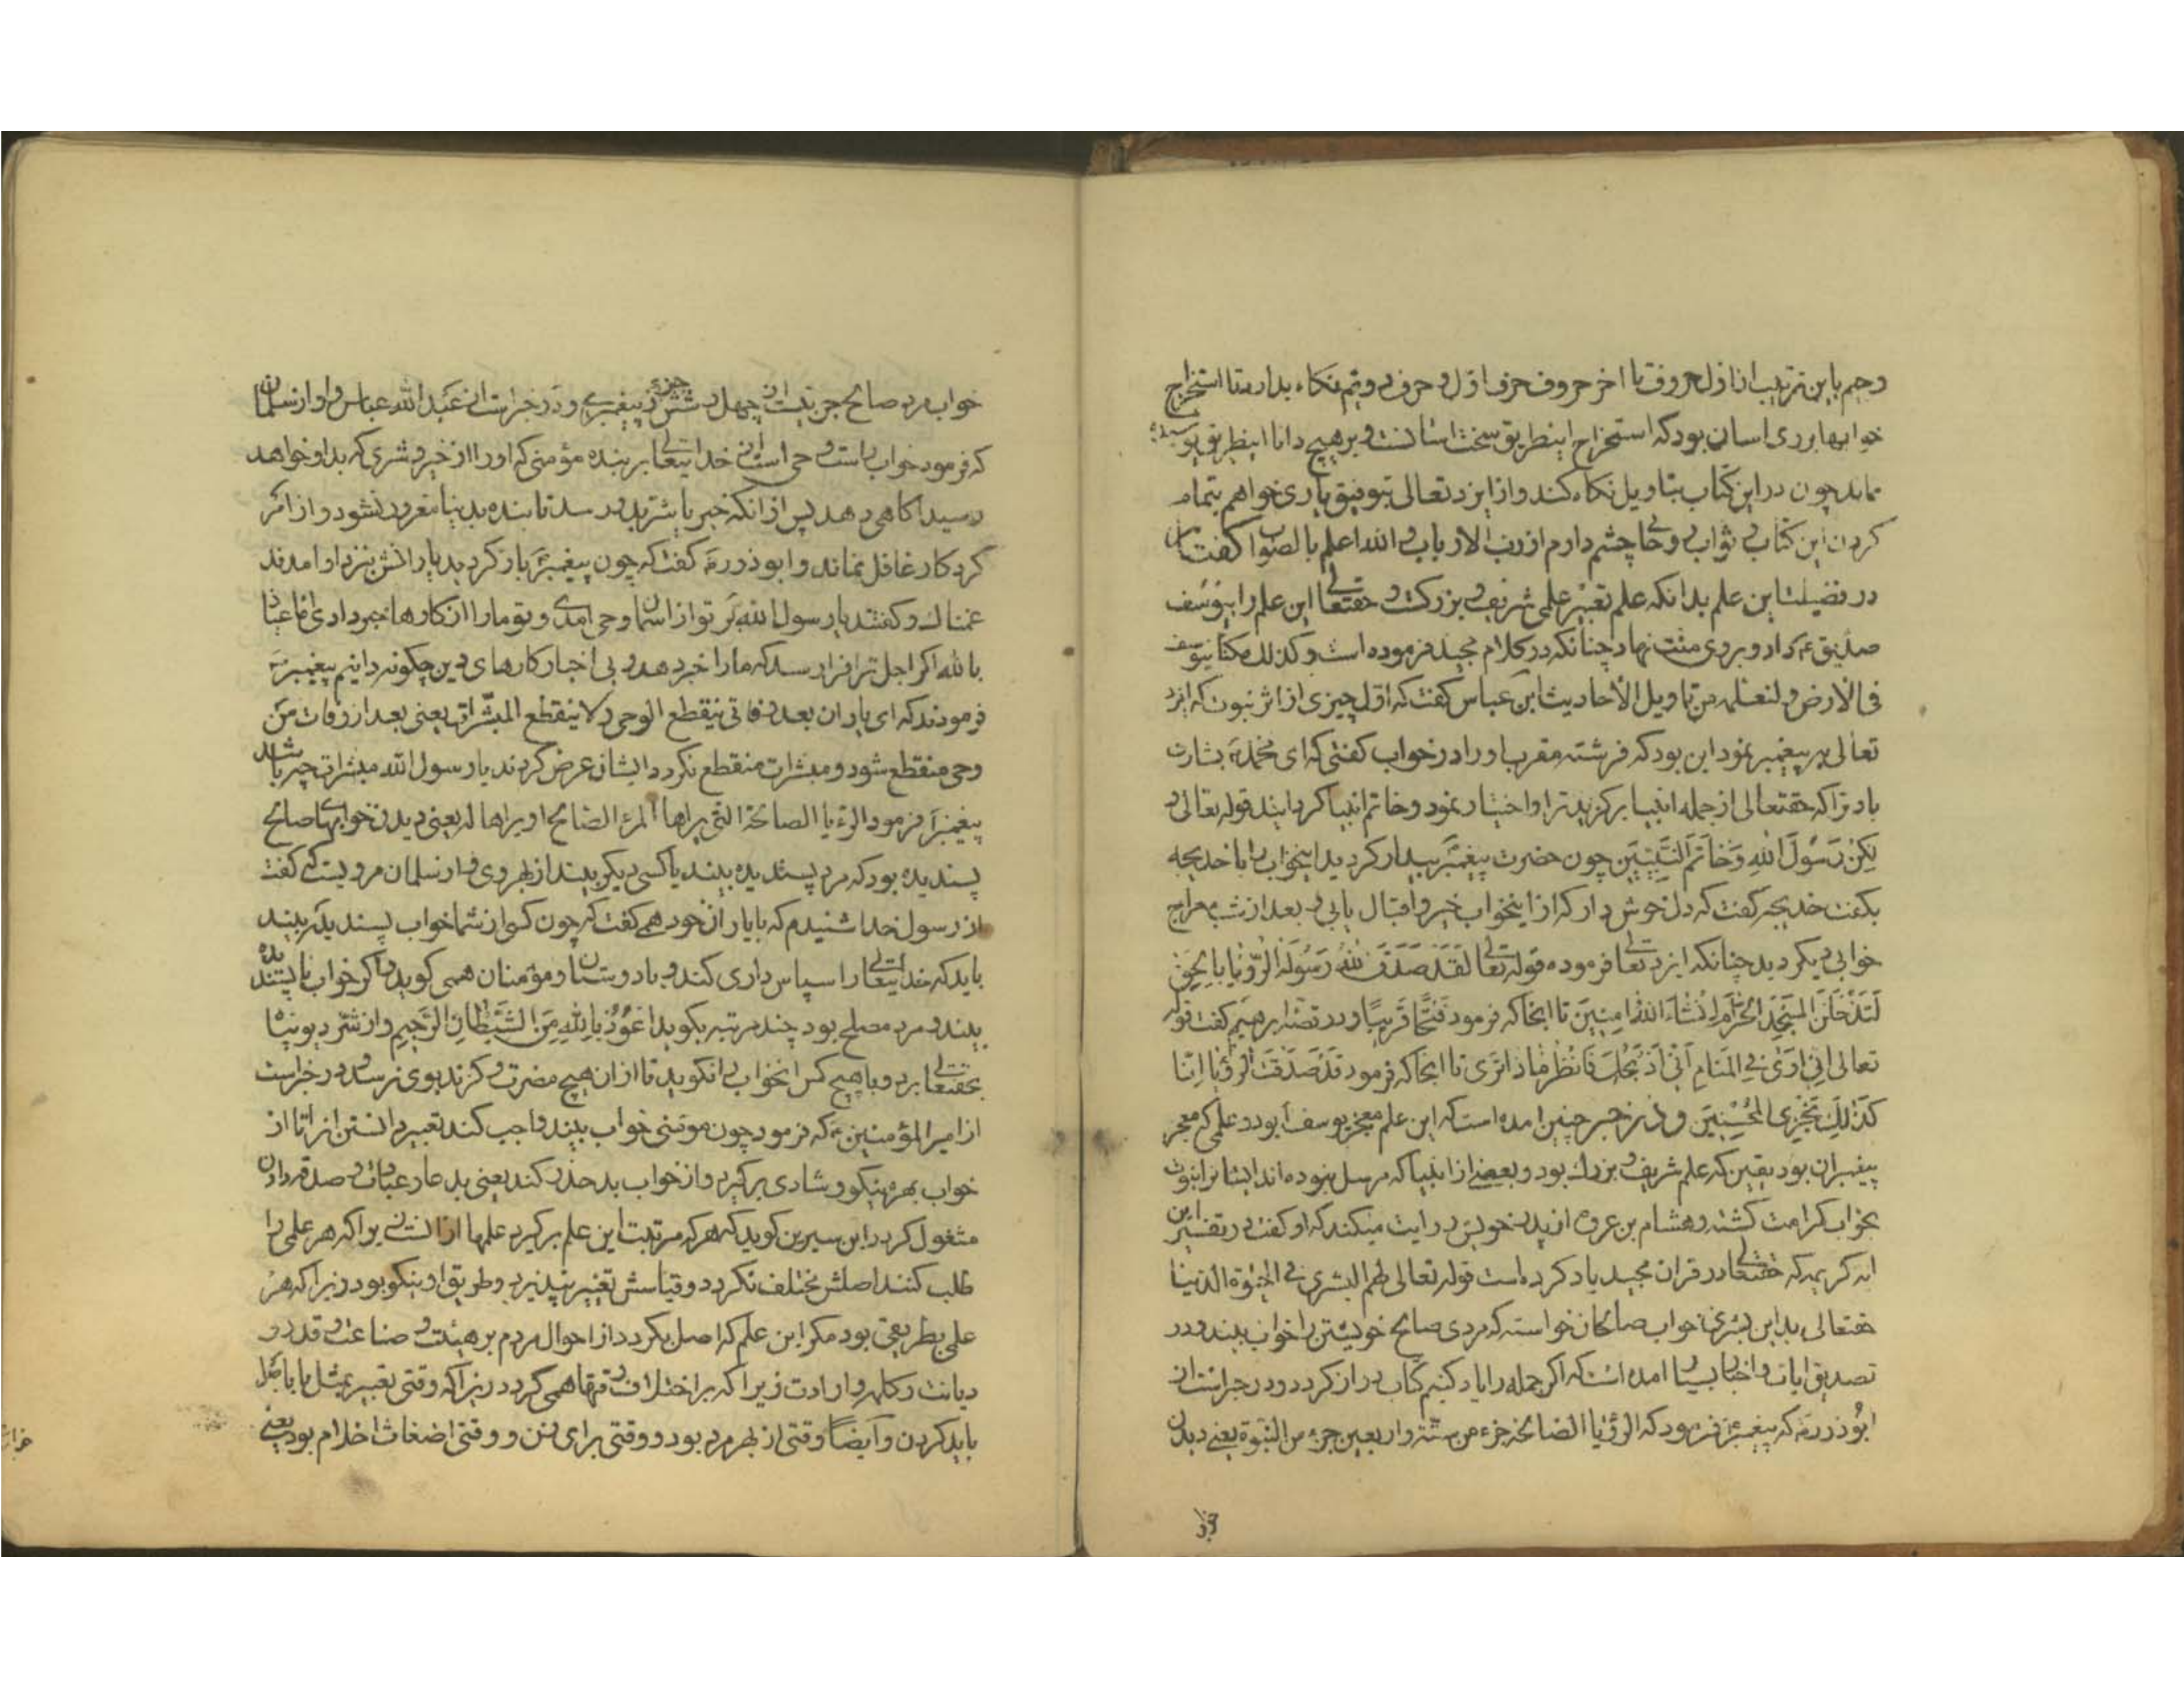 وحیم باین ترتیب از اول حروف تا اخر حروف حرف اول و حرف دویم نکاه بدارد تا استخراج
خوابها بر وی اسان بود که استخراج اینطریق سخت اسانست و بر هیچ دانا اینطریق پوشیده
نماند چون در این کتاب بتاویل نکاه کند و از ایزد تعالی بتوفیق یاری خواهم بتمام
کردن این کتاب و ثواب و دعا چشم دارم از رب الارباب و الله اعلم بالصواب گفتار
در فضیلت این علم بدانکه علم تعبیر علمی شریف و بزرکست و حقتعالی این علم را بیوسف
صدیق ع داد و بر وی منت نهاد چنانکه در کلام مجید فرموده است و کذلک مکنا لیوسف
فی الارض و لنعلمه من تاویل الاحادیث ابن عباس کفت که اول چیزی از اثر نبوت که ایزد
تعالی بر پیغمبر نمود این بود که فرشته مقرب او را در خواب کفتی که ای محمد ص بشارت
باد ترا که حقتعالی از جمله انبیا برکزید ترا و اختیار نمود و خاتم انبیا کردانید قوله تعالی و
لکن رسول الله و خاتم النبیین چون حضرت پیغمبر بیدار کردید اینخواب را با خدیجه
بکفت خدیجه کفت که دل خوش دار که از اینخواب خیر و اقبال یابی و بعد از شب معراج
خوابی دیکر دید چنانکه ایزد تعالی فرموده قوله تعالی لقد صدق الله رسوله الرؤیا بالحق
لتدخلن المسجد الحرام ان شاء الله امنین تا انجا که فرمود فتحا قریبا و در قصه ابرهیم کفت قوله
تعالی انی اری فی المنام انی اذبحک فانظر ماذا تری تا انجا که فرمود قد صدقت الرؤیا انا
کذلک نجزی المحسنین و در خبر چنین امده است که این علم معجز یوسف ع بود و علمی که معجز
پیغمبران بود یقین که علم شریف و بزرک بود و بعضی از انبیا که مرسل نبوده اند ایشانرا نبوت
بخواب کرامت کشته و هشام بن عروه از پدر خویش روایت میکند که او کفت در تفسیر این
ایه کریمه که حقتعالی در قران مجید یاد کرده است قوله تعالی لهم البشری فی الحیوة الدنیا
حقتعالی بدین بشری خواب صالحان خواسته که مردی صالح خویشتن را خواب بیند و در
تصدیق ایات و اخبار بسیار امده است که اکر جمله را یاد کنیم کتاب دراز کردد و در خبراست از
ابوذر رض که پیغمبر ص فرمود که الرؤیا الصالحة جزء من ستة و اربعین جزء من النبوة یعنی دیدن
خواب مرد صالح جزئیست از چهل و شش جزء از پیغمبری و در خبراست از عبد الله عباس و او از سلمان
که فرمود خواب راست وحی است از خدایتعالی بر بنده مؤمنی که او را از خیر و شری که بدو خواهد
رسید اکاهی دهد پس از انکه خیر یا شر بدو رسد تا بنده بدنیا مغرور نشود و از امر
کردکار غافل نماند و ابوذر رض کفت که چون پیغمبر ص باز کردید یارانش بنزد او امدند
غمناک و کفتند یا رسول الله بر تو از اسمان وحی امدی و تو مارا از کارها خبر دادی فاعیاذ
بالله اکر اجل ترا فرا رسد که مارا خبر دهد و بی اخبار کارهای دین چکونه دانیم پیغمبر ص
فرمودند که ای یاران بعد وفاتی ینقطع الوحی و لا ینقطع المبشرات یعنی بعد از وفات من
وحی منقطع شود و مبشرات منقطع نکردد ایشان عرض کردند یا رسول الله مبشرات چه باشد
پیغمبر ص فرمود الرؤیا الصالحة التی یراها المرء الصالح او یراها له یعنی دیدن خوابهای صالح
پسندیده بود که مرد پسندیده بیند یا کسی دیکر بیند از بهر وی و از سلمان مرویست که کفت
از رسول خدا شنیدم که با یاران خود همی کفت که چون کسی از شما خواب پسندیده بیند
باید که خدایتعالی را سپاس داری کند و با دوستان و مؤمنان همی کوید و اکر خواب ناپسندیده
بیند و مرد مصلح بود چند مرتبه بکوید اعوذ بالله من الشیطان الرجیم و از شر دیو پناه
بحقتعالی برد و با هیچ کس انخواب را نکوید تا از ان هیچ مضرت و کزند بوی نرسد و در خبراست
از امیر المؤمنین ع که فرمود چون مؤمنی خواب بیند واجب کند تعبیر دانستن انرا تا از
خواب بهره نیکو و شادی برکیرد و از خواب بد حذر کند یعنی بدعا و عبادت و صدقه دادن
مشغول کردد ابن سیرین کوید که هر که مرتبت این علم برکیرد علمها از انست زیرا که هر علمی را
طلب کنند اصلش مختلف نکردد و قیاسش تغییر نپذیرد و طریق او نیکو بود زیرا که هر
علمی بطریقی بود مکر این علم که اصل بکردد از احوال مردم بر هیئت و صناعت و قدر و
دیانت و کلمه و ارادت زیرا که بر اختلاف وقتها همی کردد زیرا که وقتی تعبیر بمثل باید
باید کردن و ایضا وقتی از بهر مرد بود و وقتی برای زن و وقتی اضغاث احلام بود یعنی